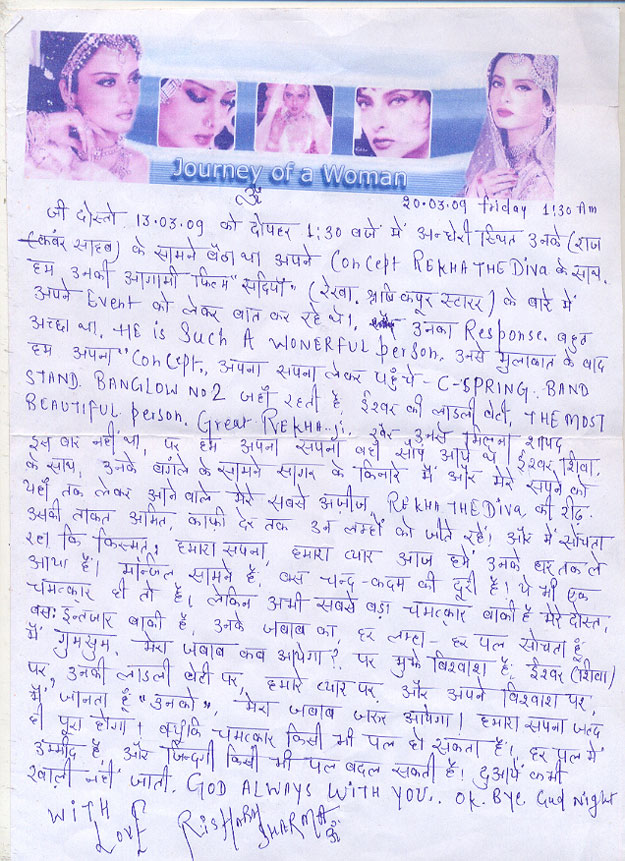 Journey of a Woman
ॐ
20.03.09 friday 1:30 Am
जी दोस्तो 13.03.09 को दोपहर 1:30 बजे में अन्धेरी स्थित उनके (राज
कंवर साहब) के सामने बैठा था अपने Concept REKHA THE Diva के साथ.
हम उनकी आगामी फिल्म "सदियाँ" (रेखा. ऋषि कपूर स्टारर) के बारे में
अपने Event को लेकर बात कर रहे थे।, उनका Response. बहुत
अच्छा था. HE is SUCH A WONERFUL person. उनसे मुलाकात के बाद
हम अपना "Concept., अपना सपना लेकर पहुंचे - C-SPRING. BAND
STAND. BANGLOW NO 2 जहाँ रहती है, ईश्वर की लाडली बेटी, THE MOST
BEAUTIFUL person. Great REKHA..ji. उनसे मिलना शायद
इस बार नहीं था, पर हम अपना सपना वहां सौंप आये थे ईश्वर शिवा.
के साथ, उनके बंगले के सामने सागर के किनारे मैं और मेरे सपने को
यहाँ तक लेकर आने वाले मेरे सबसे अज़ीज़, REKHA THE Diva की रीढ़.
उसकी ताकत अमित, काफ़ी देर तक उन लम्हों को जीते रहें। और में सोचता
रहा कि किस्मत, हमारा सपना, हमारा प्यार आज हमें उनके द्वार तक ले
आया हैं। मन्जिल सामने है, बस चन्द-कदम की दूरी है। ये भी एक
चमत्कार ही तो हैं। लेकिन अभी सबसे बड़ा चमत्कार बाकी है मेरे दोस्त,
बसः इन्तजार बाकी है, उनके जबाब का, हर लम्हा - हर पल सोचता हूँ
मैं गुमसुम. मेरा जबाब कब आयेगा?. पर मुझे विश्वाश है, ईश्वर (शिवा)
पर, उनकी लाडली बेटी पर, हमारे प्यार पर और अपने विश्वाश पर,
मैं जानता हूँ "उनको", मेरा जबाब जरुर आयेगा। हमारा सपना जल्द
ही पूरा होगा। क्यूंकि चमत्कार किसी भी पल हो सकता है।, हर पल में
उम्मीद है और जिन्दगी किसी भी पल बदल सकती हैं। दुआयें कभी
खाली नहीं जाती. GOD ALWAYS WITH YOU.. OK. BYE. Gud Night
WITH
LOVE RISHABH SHARMA ॐ